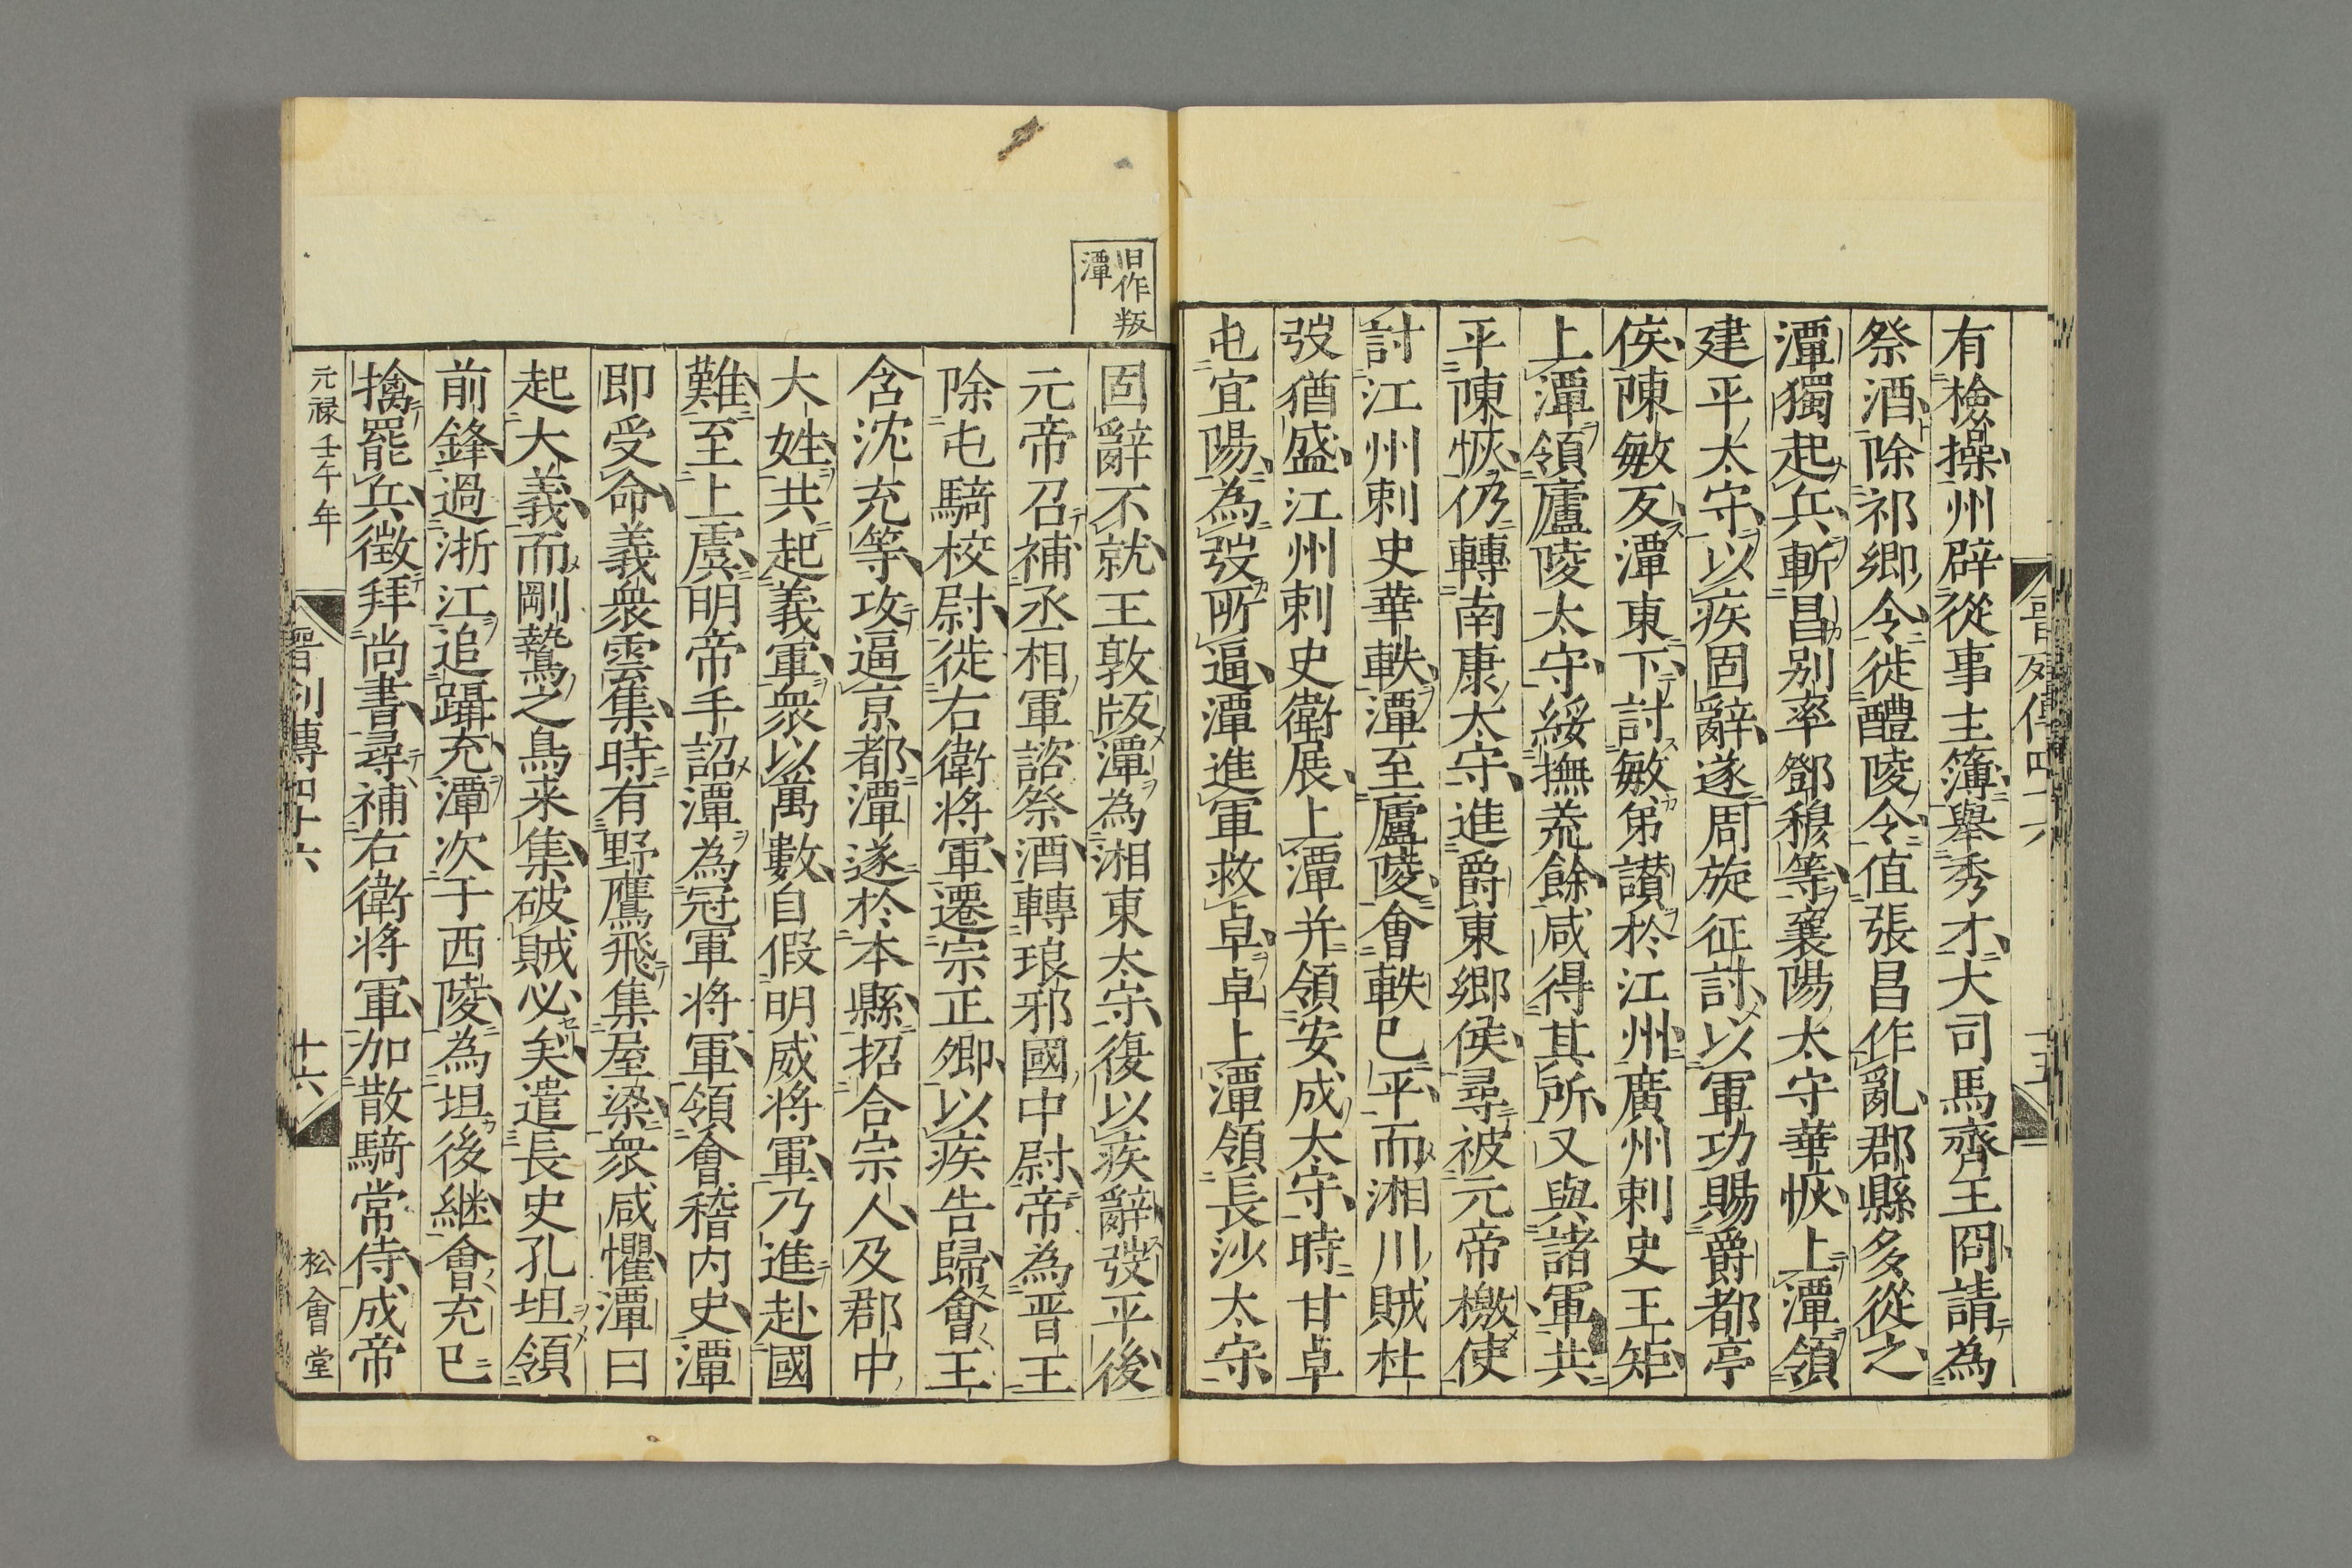 晉列傳四十六
十五
有檢操州辟從事主簿舉秀才大司馬齊王冏請為
祭酒除祁鄉令徙醴陵令值張昌作亂郡縣多從之
潭獨起兵斬昌別率鄧穆等襄陽太守華恢上潭領
建平太守以疾固辭遂周旋征討以軍功賜爵都亭
侯陳敏反潭東下討敏弟讃於江州廣州刺史王矩
上潭領廬陵太守綏撫荒餘咸得其所又與諸軍共
平陳恢仍轉南康太守進爵東鄉侯尋被元帝檄使
討江州刺史華軼潭至廬陵會軼已平而湘川賊杜
弢猶盛江州刺史衛展上潭并領安成太守時甘卓
屯宜陽為弢所逼潭進軍救卓卓上潭領長沙太守
旧作叛
潭
固辭不就王敦版潭為湘東太守復以疾辭弢平後
元帝召補丞相軍諮祭酒轉琅邪國中尉帝為晋王
除屯騎校尉徙右衛将軍遷宗正卿以疾告歸會王
含沈充等攻逼京都潭遂於本縣招合宗人及郡中
大姓共起義軍衆以萬數自假明威将軍乃進赴國
難至上虞明帝手詔潭為冠軍将軍領會稽内史潭
即受命義衆雲集時有野鷹飛集屋梁衆咸懼潭曰
起大義而剛鷙之鳥来集破賊必矣遣長史孔坦領
前鋒過浙江追躡充潭次于西陵為坦後継會充已
擒罷兵徴拜尚書尋補右衛将軍加散騎常侍成帝
元禄壬午年
晉列傳四十六
十六
松會堂